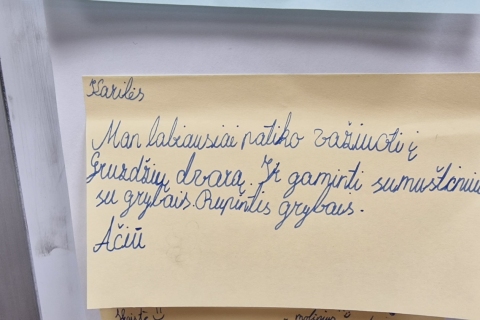 Karilės
Man labiausiai patiko važiuoti į
Gruzdžių dvarą. Ir gaminti sumuštinius
su grybais. Rūpintis grybais.
Ačiū